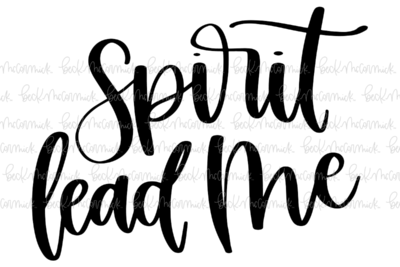 Spirit
lead Me